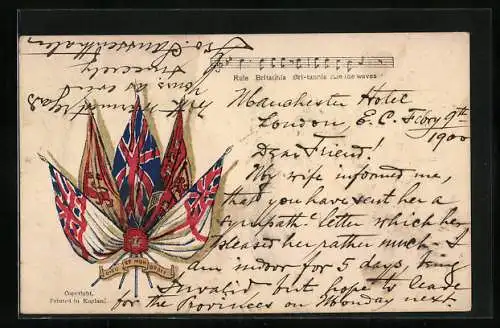 Rule Britannia Brittannia rule the waves
Manchester Hotel
London, E. C. Febry 9th
1900
Dear Friend!
My wife informed me,
that you have sent her a
sympath. letter which her
pleased her rather much. I
am indoor for 5 days, being
Invalid but hope to leave
for the Provinces on Monday next.
With
Yours as ever
Sincerely
DIEU ET MON DROIT
Copyright.
Printed in England.